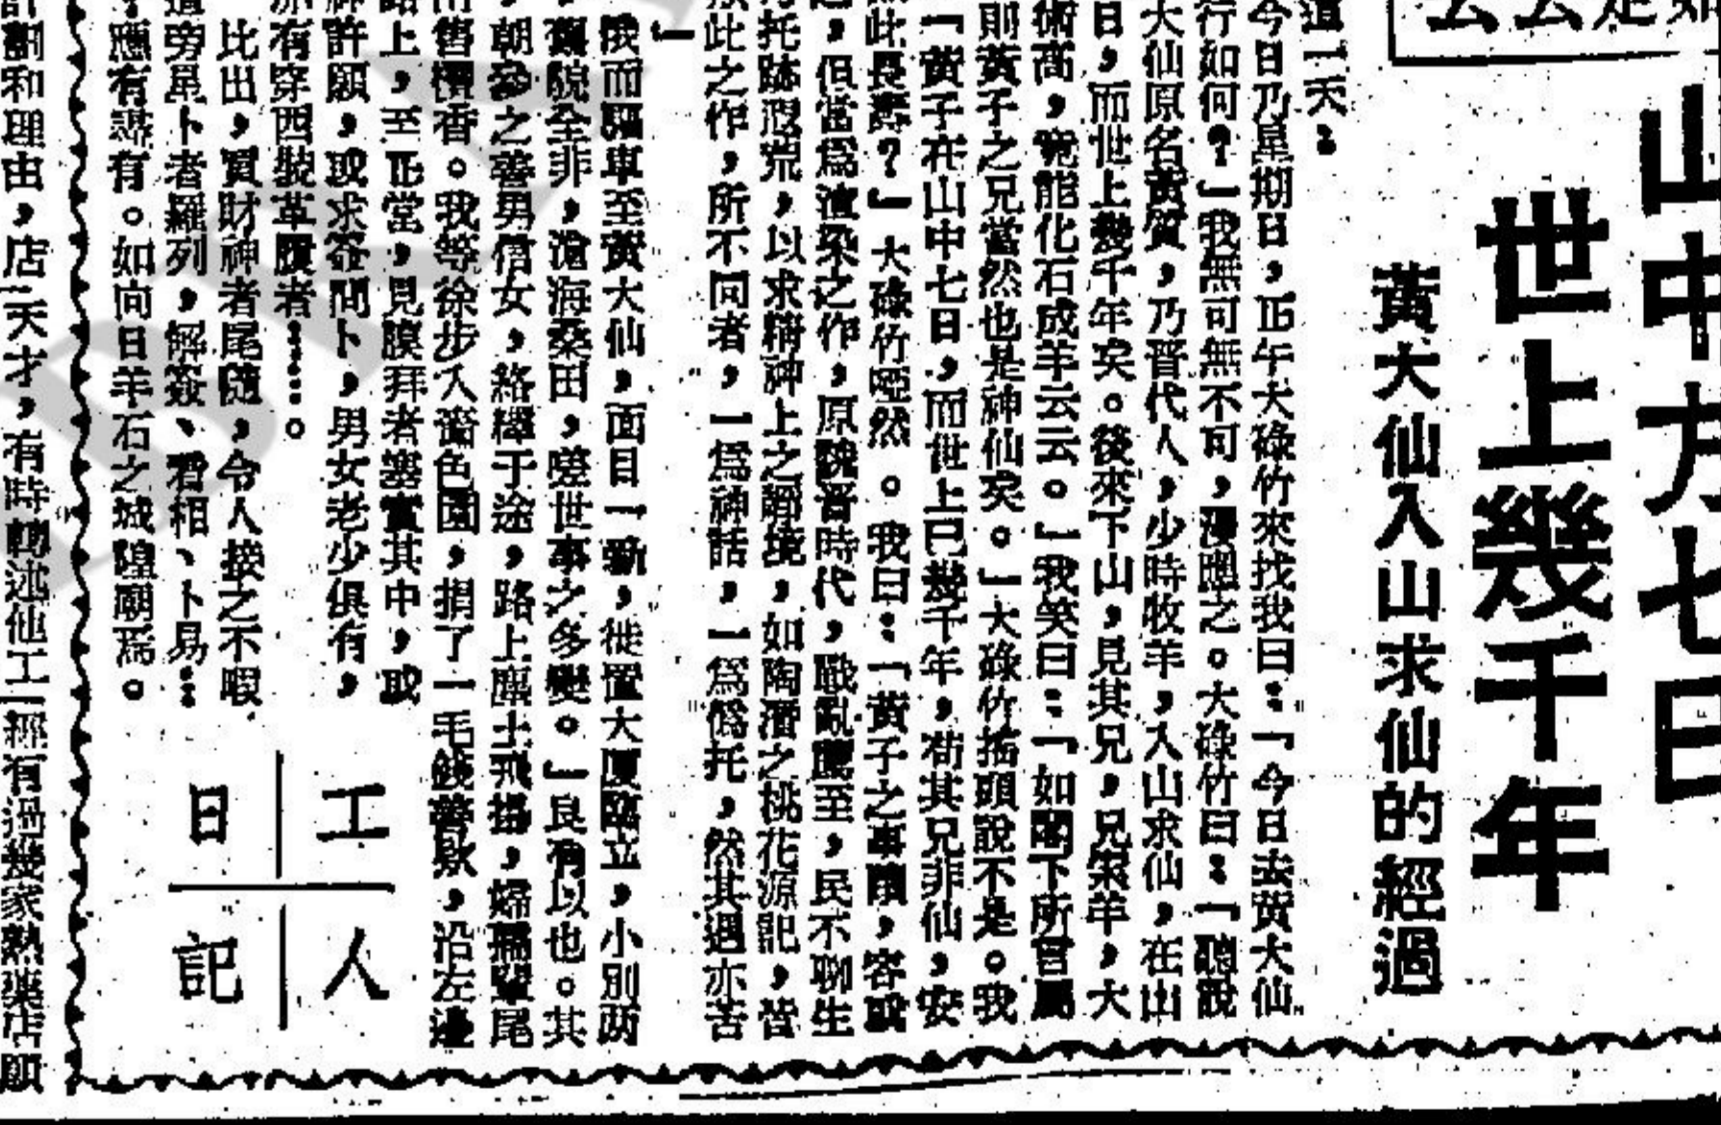 山中方七日
世上幾千年
黃大仙入山求仙的經過
這一天：
今日乃星期日，正午大碌竹來找我曰：「今日去黃大仙
行如何？」我無可無不可，漫應之。大碌竹曰：「聽說
大仙原名黃質，乃晉代人，少時牧羊，入山求仙，在山
日，而世上幾千年矣。後來下山，見其兄，兄索羊，大
術高，竟能化石成羊云云。」我笑曰：「如閣下所言屬
則黃子之兄當然也是神仙矣。」大碌竹搖頭說不是。我
「黃子在山中七日，而世上已幾千年，苟其兄非仙，安
此長壽？』大碌竹啞然。我曰：「黃子之事蹟，容或
，但當為渲染之作，原魏晉時代，戰亂薦至，民不聊生
托跡遐荒，以求精神上之韜境，如陶潛之桃花源記，皆
此之作，所不同者，一為神話，一為偽托，然其遇亦苦
」
俄而驅車至黃大仙，面目一新，徙置大厦矗立，小別兩
，舊貌全非，滄海桑田，嗟世事之多變。』良有以也。其
，朝參之善男信女，絡繹于途，路上塵土飛揚，婦孺輩尾
售檀香。我等徐步入嗇色園，捐了一毛錢善欵，沿左邊
路上，至正堂，見膜拜者塞實其中，或
許願，或求簽問卜，男女老少俱有，
有穿西裝革履者……。
比出，買財神者尾隨，令人接之不暇
道旁星卜者羅列，解簽、看相、卜易…
應有盡有。如向日羊石之城隍廟焉。
工人日記
計劃和理由，店
天才，有時動述他工
經有過幾家熟藥店願